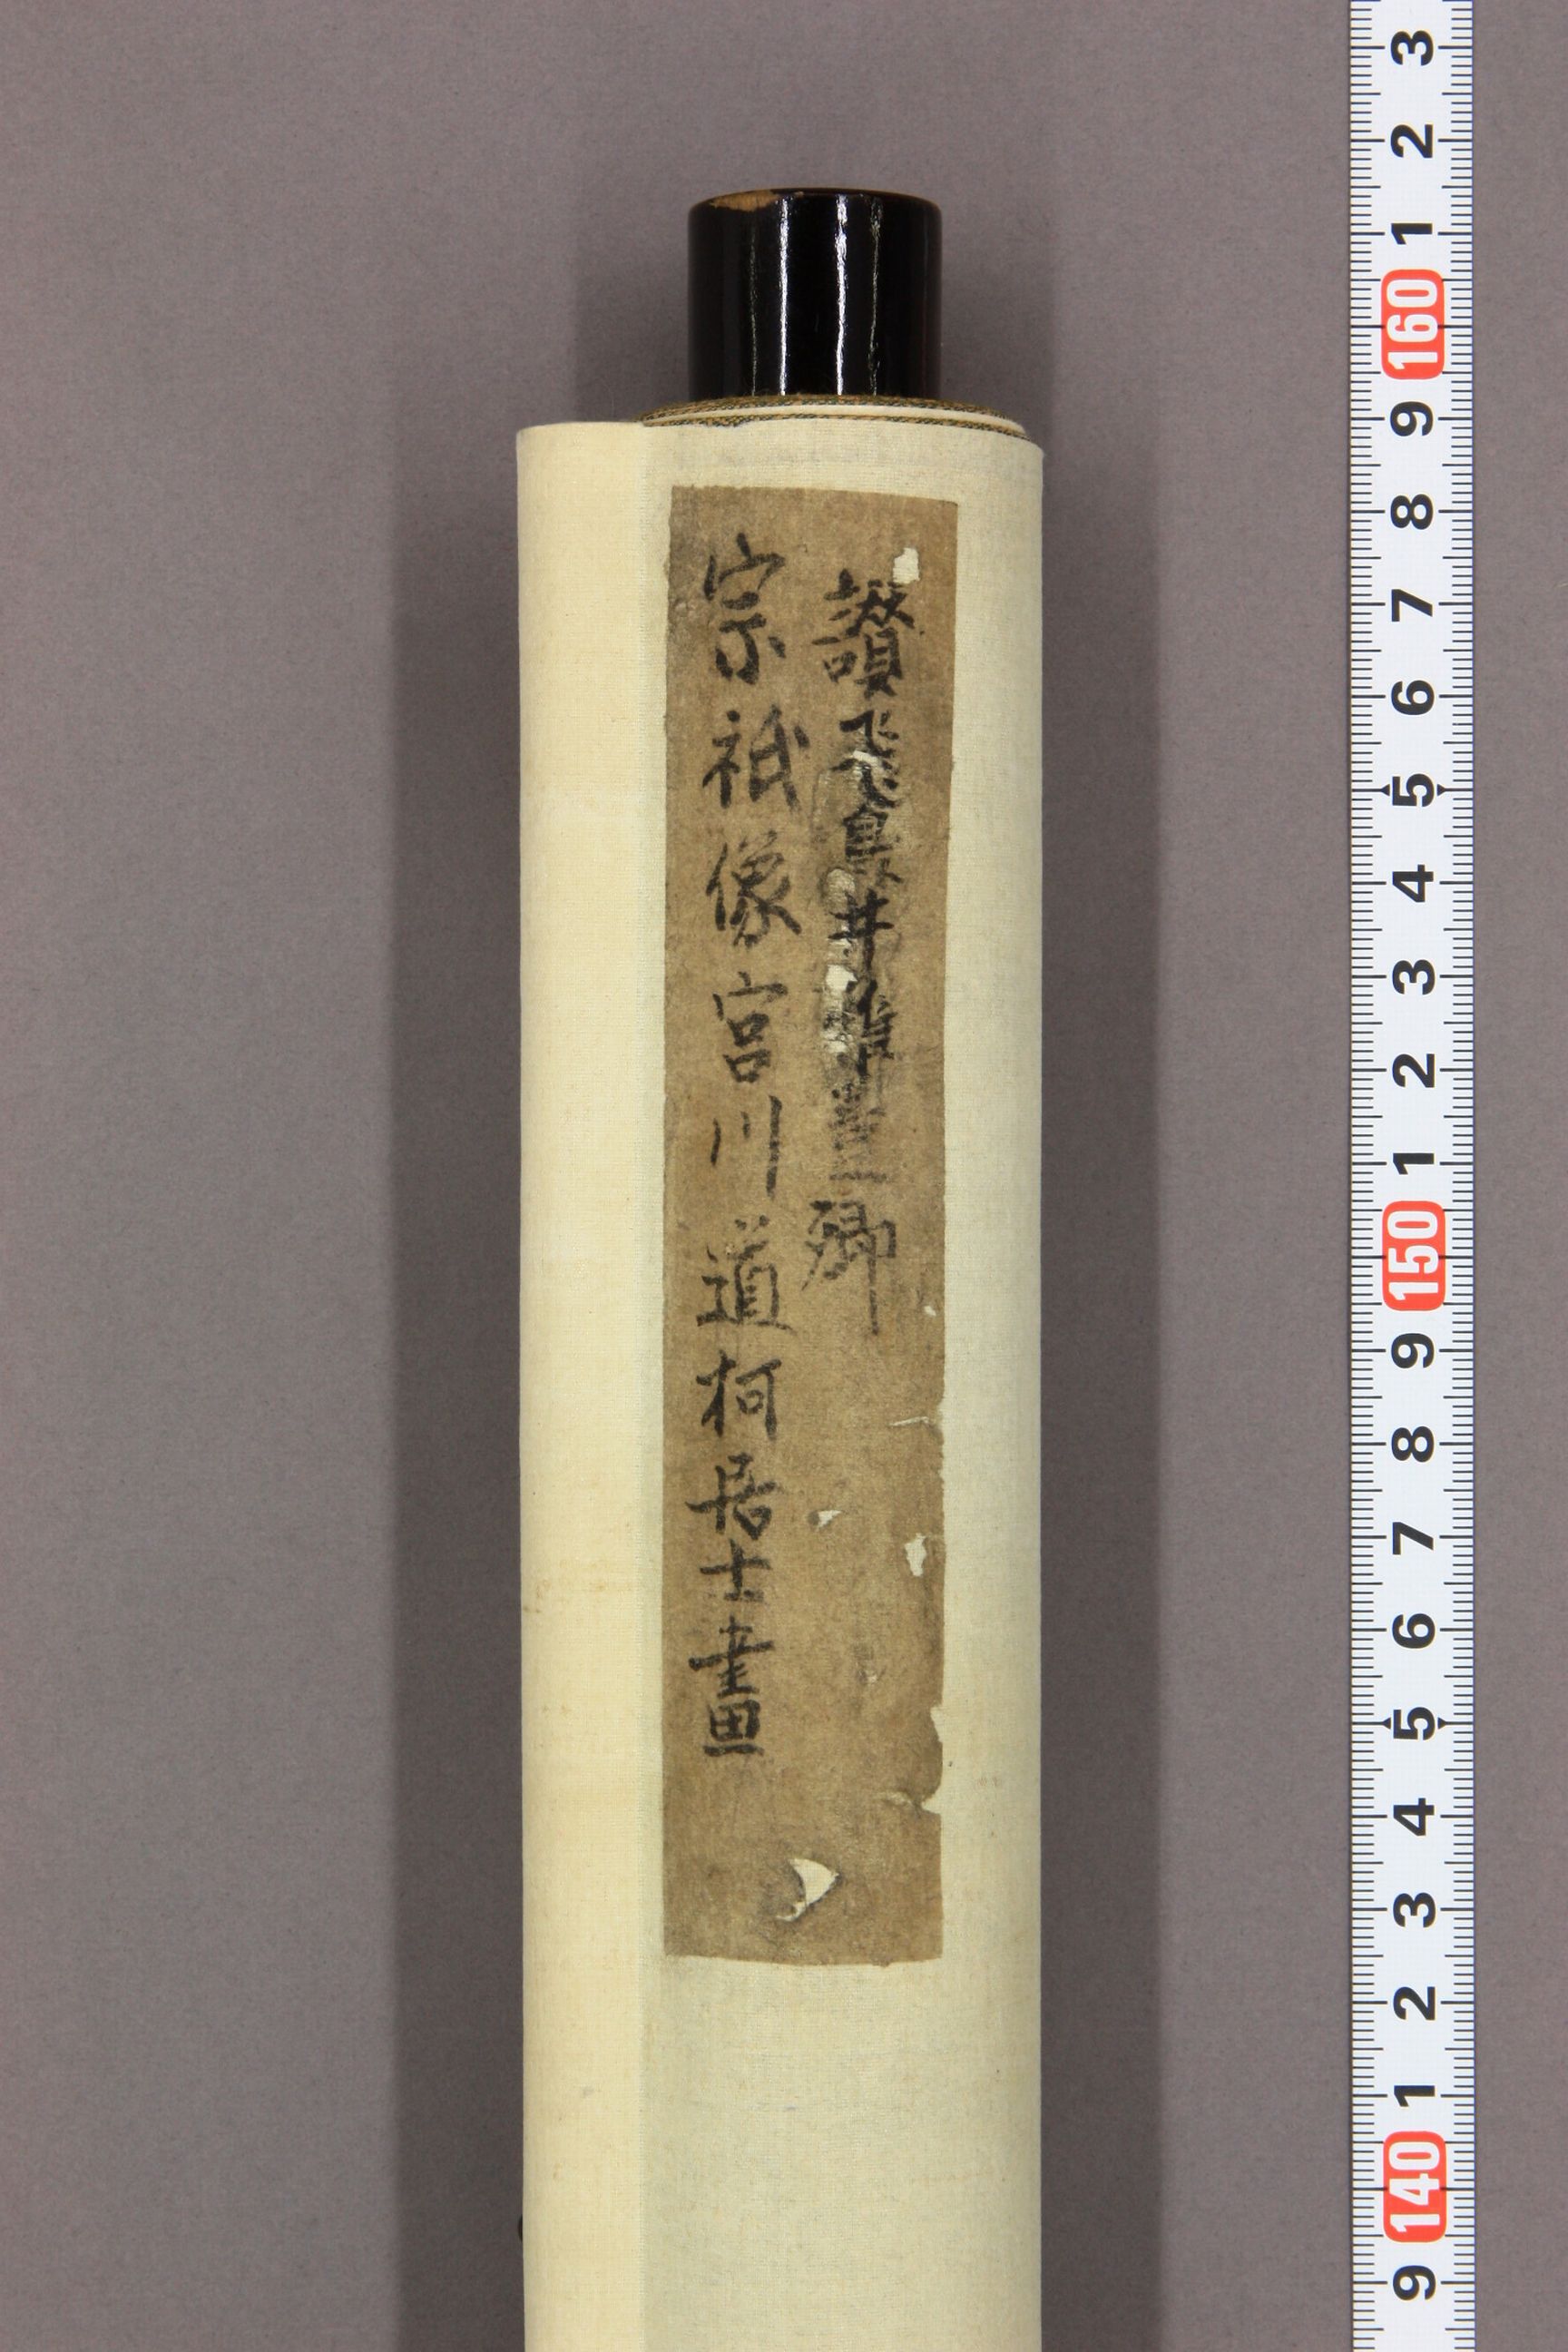 讃飛鳥井雅豊卿
宗祇像宮川道柯居士畫
3
2
1
160
9
8
7
6
5
4
3
2
1
150
9
8
7
6
5
4
3
2
1
140
9